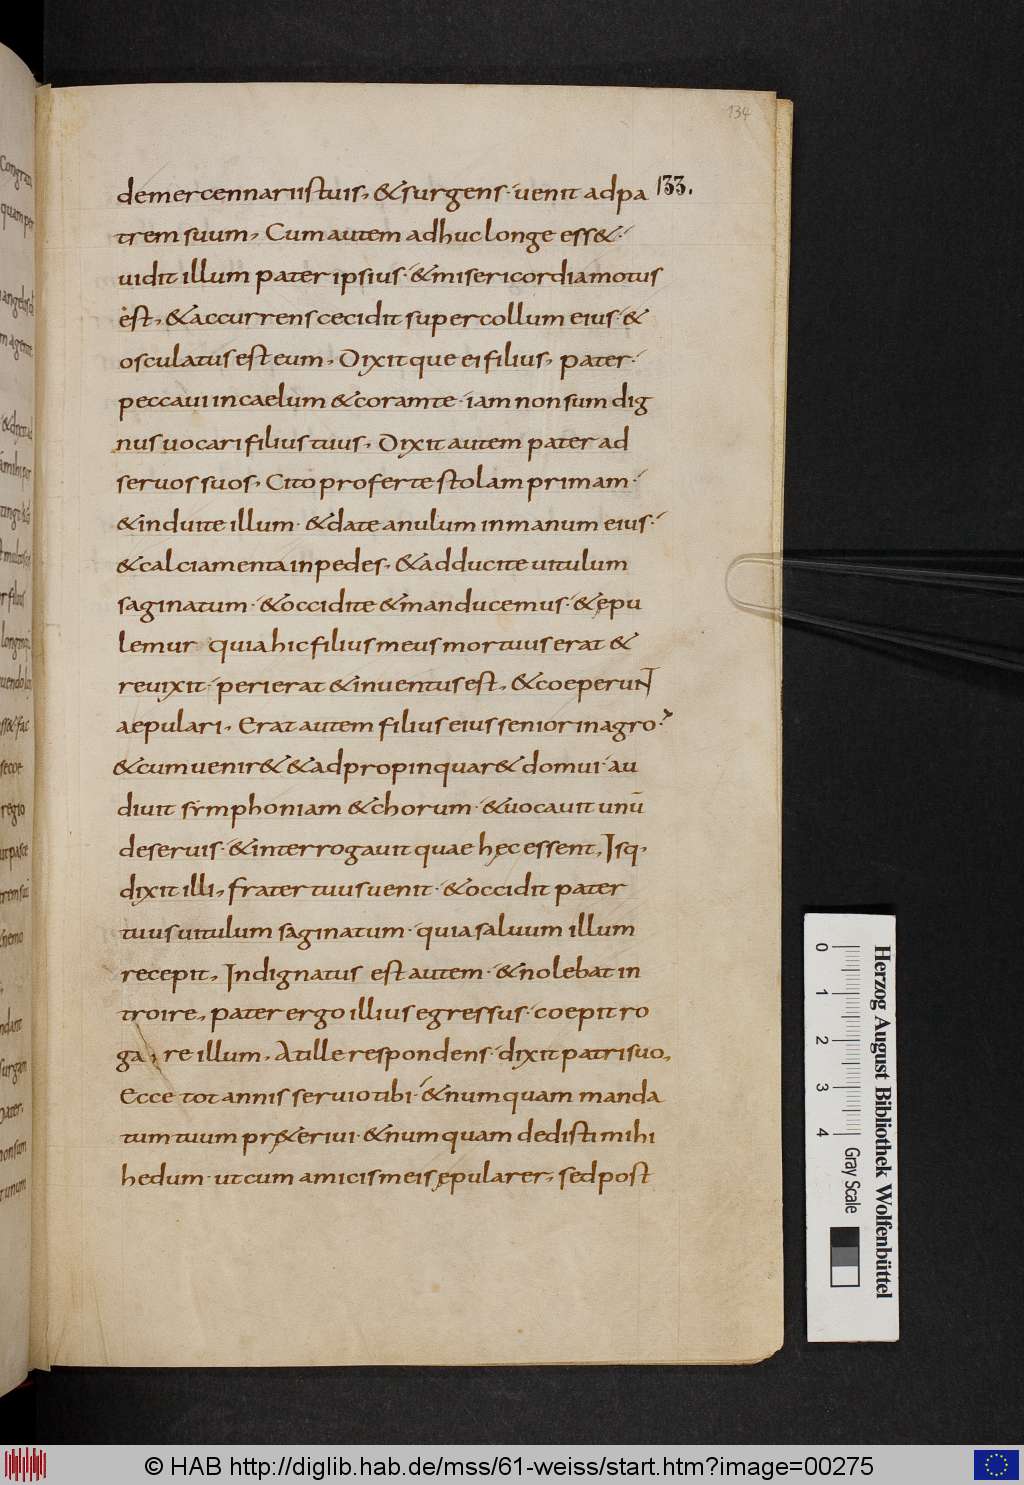 134
133.
de mercennariis tuis, & surgens · venit ad pa
trem suum, Cum autem adhuc longe ess& ·
vidit illum pater ipsius · & misericordia motus
est, & accurrens cecidit super collum eius · &
osculatus est eum, Dixitque ei filius, pater ·
peccaui in caelum & coram te · iam non sum dig
nus uocari filius tuus, Dixit autem pater ad
seruos suos, Cito proferte stolam primam ·
& induite illum · & date anulum in manum eius ·
& calciamenta in pedes, & adducite uitulum
saginatum · & occidite & manducemus · & ępu
lemur quia hic filius meus mortuus erat &
reuixit · perierat & inuentus est, & coeperunt
aepulari, Erat autem filius eius senior in agro ·
& cum uenir& & adpropinquar& domui · au
diuit symphoniam & chorum · & uocauit unū
de seruis · & interrogauit quae hęc essent, Isq,
dixit illi, frater tuus uenit · & occidit pater
tuus uitulum saginatum · quia saluum illum
recepit, Indignatus est autem · & nolebat in
troire, pater ergo illius egressus · coepit ro
ga re illum, At ille respondens · dixit patri suo,
Ecce tot annis seruio tibi · & numquam manda
tum tuum pr&eriui · & numquam dedisti mihi
hedum · ut cum amicis meis ępularer, sed post
Herzog August Bibliothek Wolfenbüttel
0 1 2 3 4 Gray Scale
© HAB http://diglib.hab.de/mss/61-weiss/start.htm?image=00275